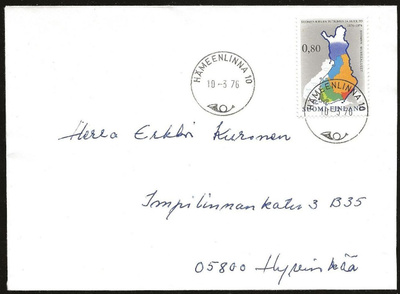 0,80
SUOMI FINLAND
HÄMEENLINNA 10
10-3 76
HÄMEENLINNA 10
10-3 76
Herra Erkki Kuronen
Impilinnankatu 3 B35
05800 Hyvinkää